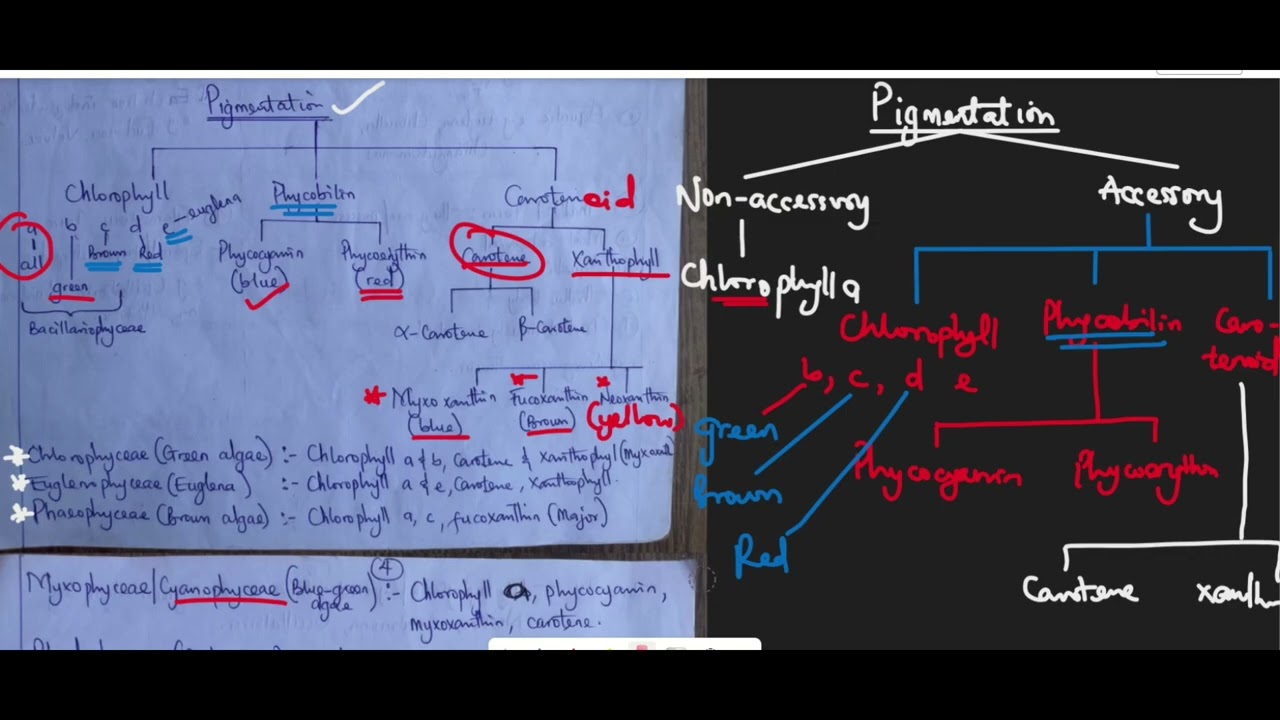 Pigmentation
Chlorophyll Phycobilin Caroteneoid
a b c d e - euglena
all Brown Red
green
Bacillariophyceae
Phycocyanin Phycoerythin Carotene Xanthophyll
(blue) (red)
α-Carotene β-Carotene
Myxoxanthin Fucoxanthin Neoxanthin
(blue) (Brown) (yellow)
Chlorophyceae (Green algae) :- Chlorophyll a & b, Carotene & Xanthophyl
Euglenophyceae (Euglena) :- Chlorophyll a & e, Carotene, Xanthophyll.
Phaeophyceae (Brown algae) :- Chlorophyll a, c, fucoxanthin (Major)
4
Myxophyceae/Cyanophyceae (Blue-green algae) :- Chlorophyll a, phycocyanin,
myxoxanthin, carotene.
Pigmentation
Non-accessory Accessory
Chlorophyll a
Chlorophyll Phycobilin Caro-
tenoid
b, c, d e
green
Brown
Red
Phycocyanin Phycoerythin
Carotene xanth